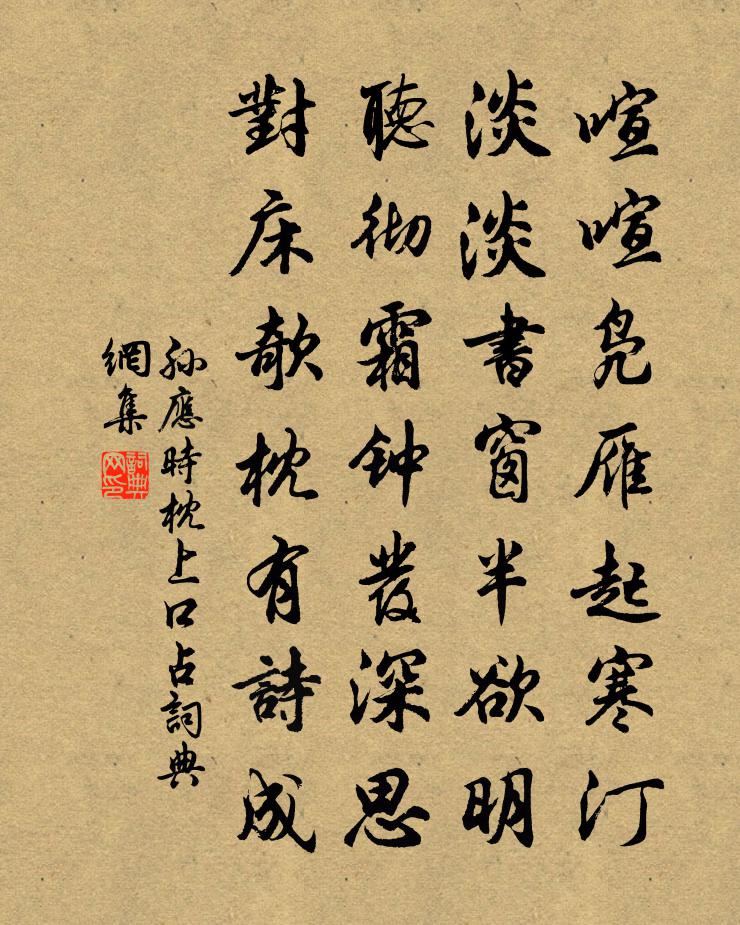 喧喧鳧雁起寒汀
淡淡書窗半欲明
聽彻霜钟發深思
對床欹枕有詩成
孙應時枕上口占詞典
網集
詞典
网印